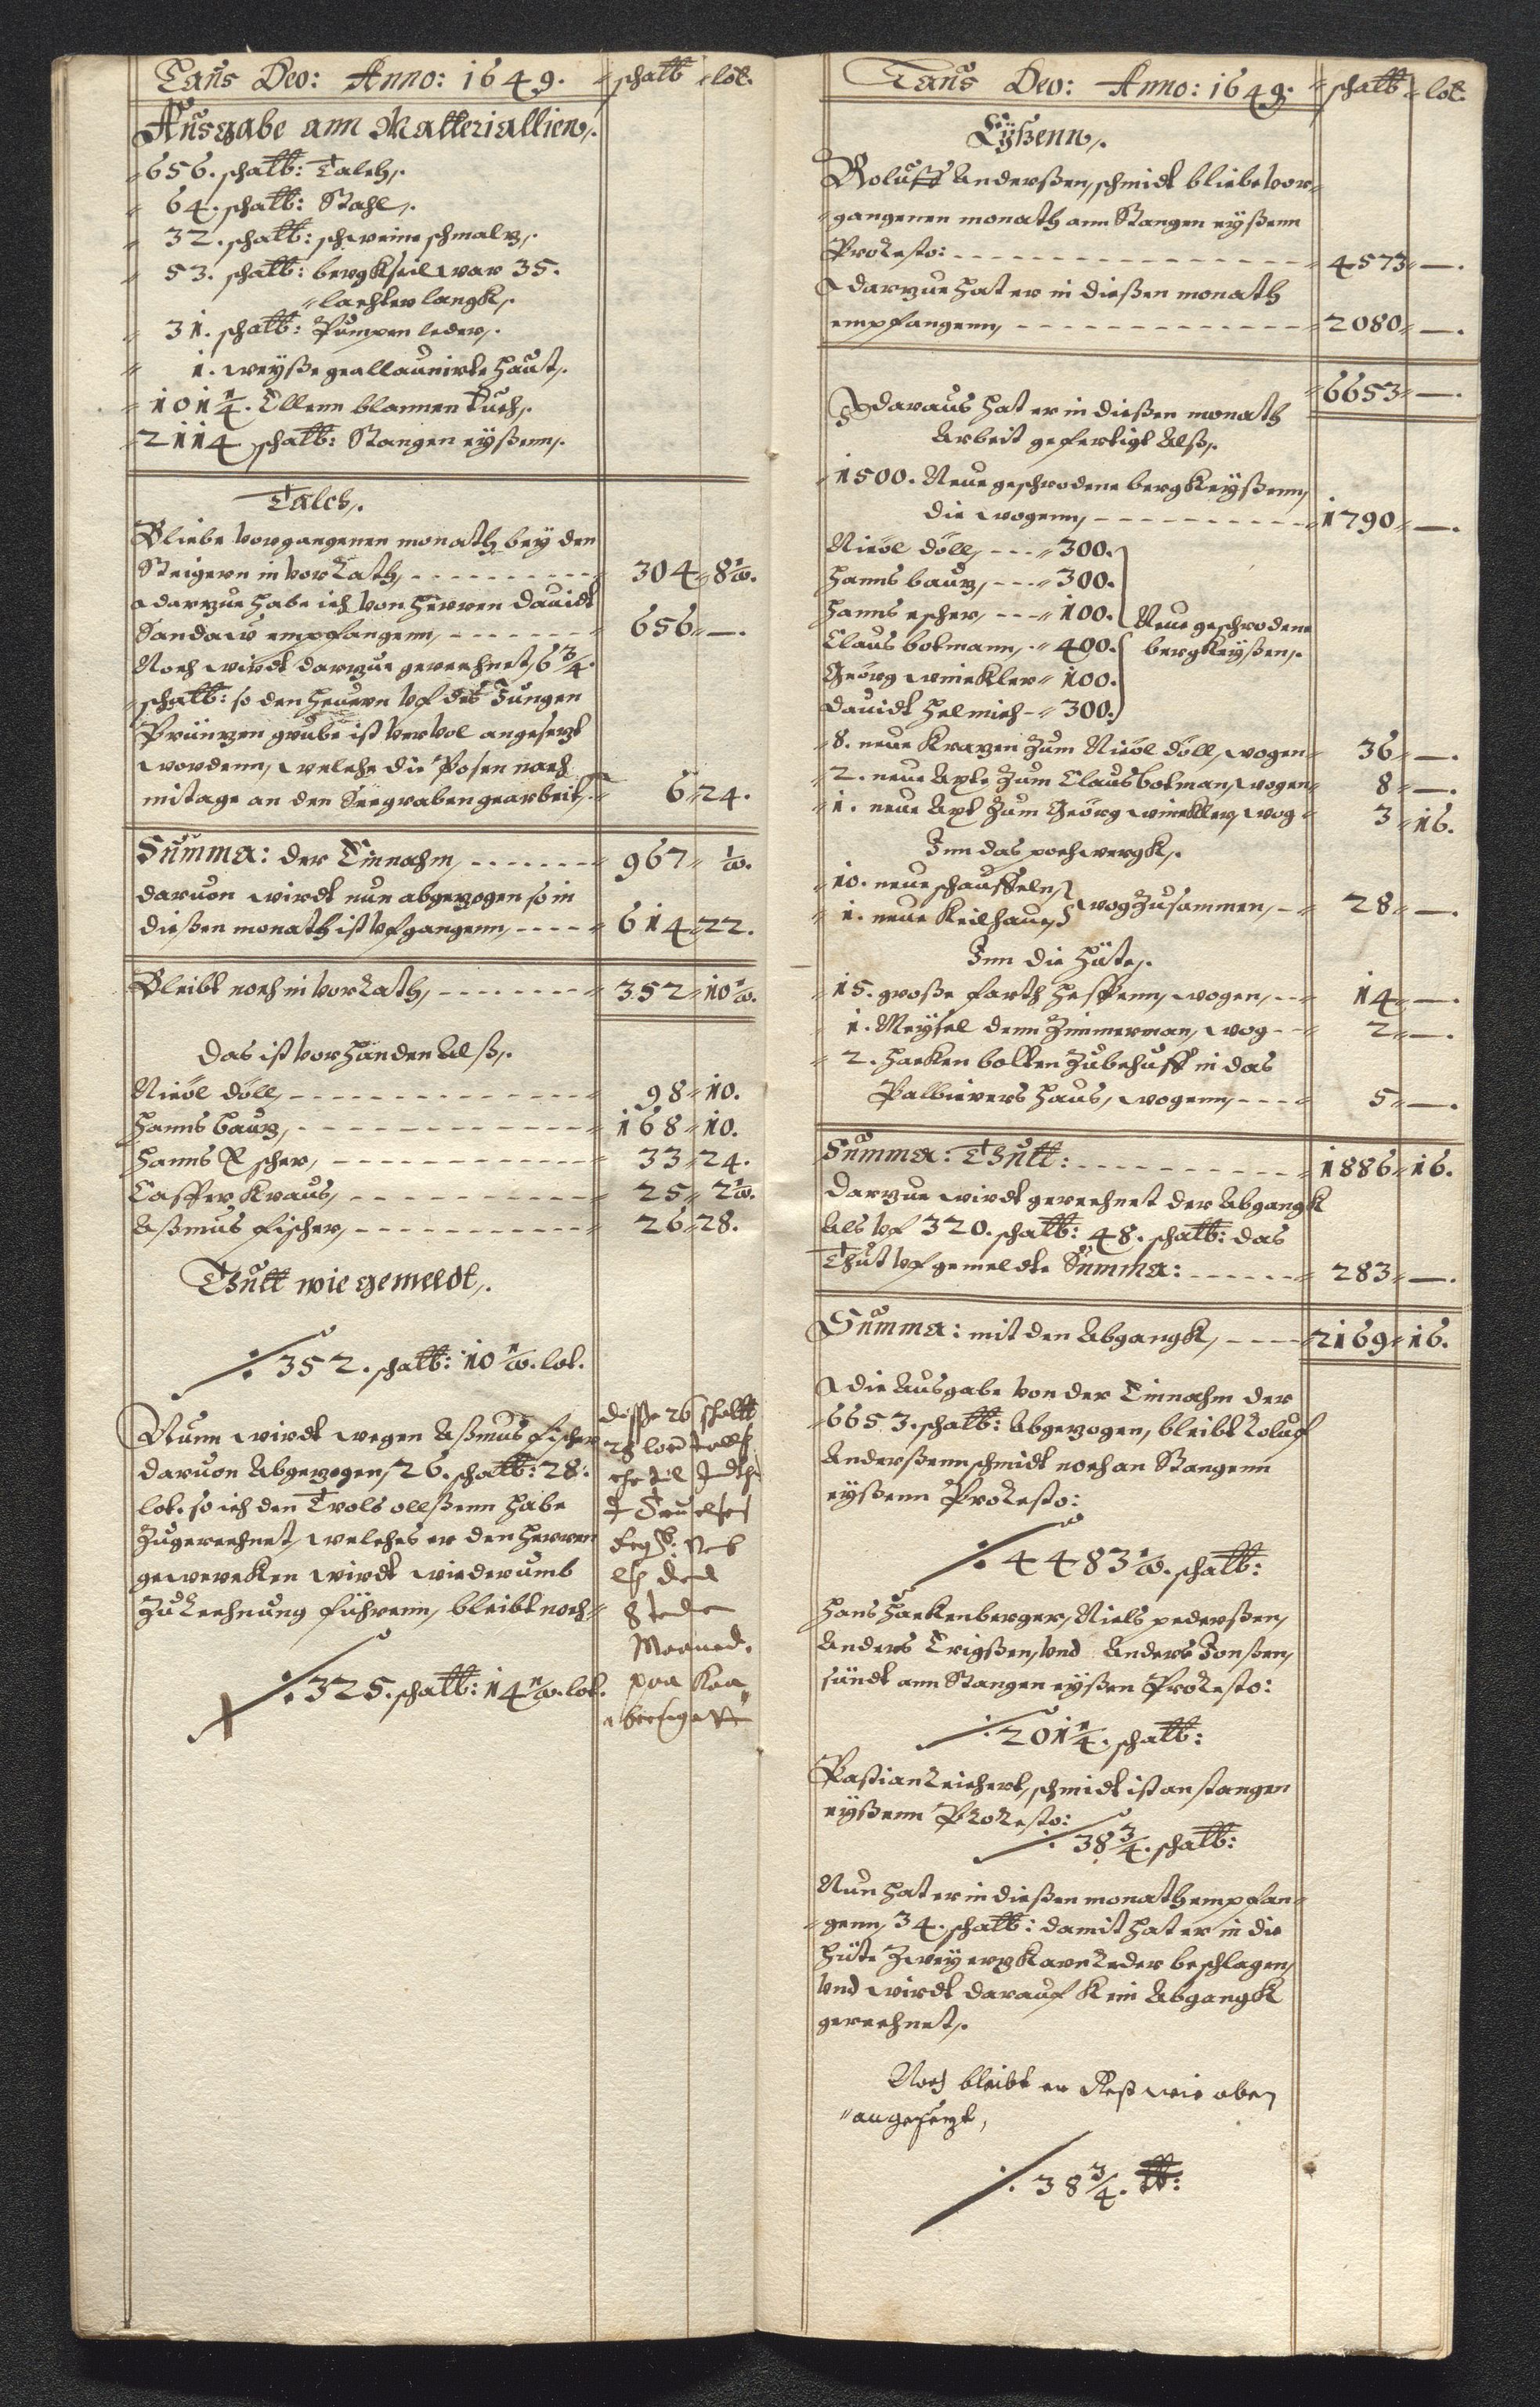 Laus Deo: Anno: 1649. schalb lot.
Ausgabe ann Matteriallien,.
656. schalb: Talch,.
64. schalb: Stahl,.
32. schalb: schweine schmalz,.
53. schalb: bergkseil war 35.
lachter langk,.
31. schalb: Pumpen leder,.
1. weyße geallaunirte Haut,.
101 1/4. Ellenn blannen tuch,.
2114 schalb: Stangen eyßenn,.
Talch,.
Bliebe vorgangenen monath, bey den
Steigern in vorRath, 304 8 1/2.
darzue habe ich von Herren Dauidt
Sandaw empfangenn, 656 —.
Noch wirdt darzue gerechnet, 6 3/4.
schalb: so den Heuern vf des Jungen
Prinzen grube ist vervol angesezt
wordenn, welche die Posen nach
mitage an den Seegraben gearbeit, 6 24.
Summa: der Einnahm, 967 1/2.
daruon wirdt nun abgezogen so in
dießen monath ist vfgangenn, 614 22.
Bleibt noch in vorRath, 352 10 1/2.
Das ist vorhanden Alß,.
Nicol döll, 98 10.
Hanns bauz, 168 10.
Hanns Escher, 33 24.
Casper Kraus, 25 2 1/2.
Aßmus fischer, 26 28.
Thutt wie gemeldt,.
352. schalb: 10 1/2. lot.
Nunn wirdt wegen Aßmus fischer
daruon Abgezogen, 26. schalb: 28.
lot. so ich den Trols ollßenn habe
zugerechnet, welches er den Herren
gewercken wirdt wiederumb
zu Rechnung führenn, bleibt noch
325. schalb: 14 1/2. lot.
disse 26 schalb
28 lod
Maaned.
paa
Laus Deo: Anno: 1649. schalb lot.
Eyßenn,.
Roluff Anderßen, schmidt bliebe vor-
gangenen monath ann Stangen eyßenn
ProResto: 4573 —.
darzue hat er in dießen monath
empfangenn, 2080 —.
6653 —.
daraus hat er in dießen monath
Arbeit gefertigt Alß,.
1500. Neue geschrodene bergkeyßenn,
die wogenn, 1790 —.
Nicol döll, 300.
Hanns bauz, 300.
Hanns escher, 100. Neue geschrodene
Claus botmann, 400. bergkeyßen,.
Geörg winckler 100.
Dauidt Helmich 300.
8. neue Krazen zum Nicol döll, wogen 36 —.
2. neue Axte zum Claus botman, wogen 8 —.
1. neue Axt zum Geörg winckler, wog 3 16.
Inn das pochwergk,.
10. neue schauffeln,
1. neue Keilhaue, wog zusammen, 28 —.
Inn die Hüte,.
15. große farth Heffenn, wogen, 14 —.
1. Meysel denn Zimmerman, wog 2 —.
2. Hacken bolten zubehuff in das
Palbierers Haus, wogenn, 5 —.
Summa: Thutt: 1886 16.
darzue wirdt gerechnet der Abgangk
Als vf 320. schalb: 48. schalb: das
Thut vf gemeldte Summa: 283 —.
Summa: mit den Abgangk, 2169 16.
die Ausgabe von der Einnahm der
6653. schalb: Abgezogen, bleibt Roluf
Anderßenn schmidt noch an Stangenn
eyßenn ProResto:
4483 1/2. schalb:
Hans Hackenberger, Niels pederßen,
Anders Trigßen, vnd Anders Jonßen,
sündt ann Stangen eyßen ProResto:
201 1/4. schalb:
Pastian Reichert, schmidt ist an stangen
eyßenn ProResto:
38 3/4. schalb:
Nun hat er in dießen monath empfan-
genn, 34. schalb: damit hat er in die
Hüte zwey erzkarn Reder beschlagen,
vnd wirdt darauf kein Abgangk
gerechnet,.
Noch bleibt er Rest wie oben
angesezt,
38 3/4. lb: